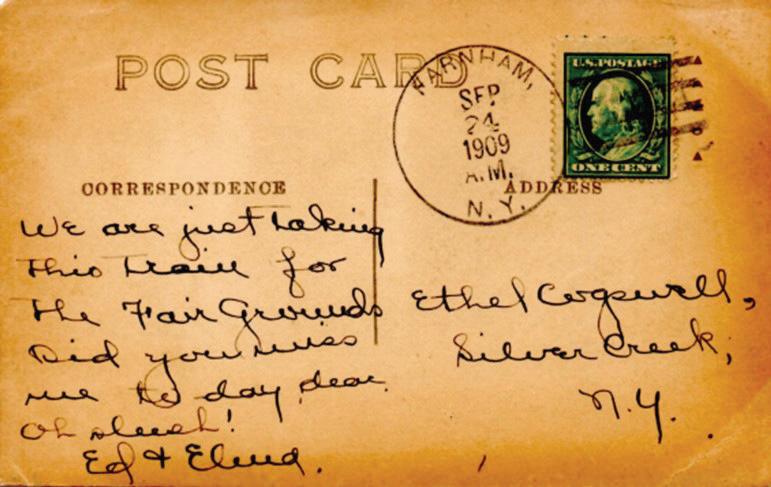 POST CARD
FARNHAM,
SEP
24
1909
A.M.
N.Y.
U.S. POSTAGE
ONE CENT
CORRESPONDENCE
ADDRESS
We are just taking
this train for
the Fair Grounds
Did you miss
me to day dear.
Oh slush!
Ed &
Ethel Cogswell,
Silver Creek,
N.Y.